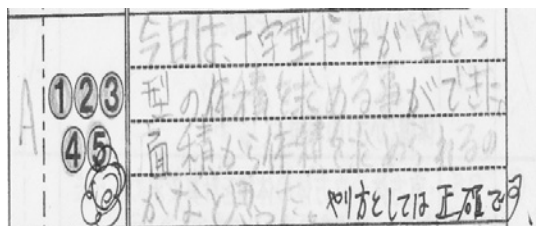 A
①②③
④⑤
今日は、十字型や中が空どう
型の体積を求める事ができた。
面積から体積を求められるの
かなと思った。
やり方としては正確です。